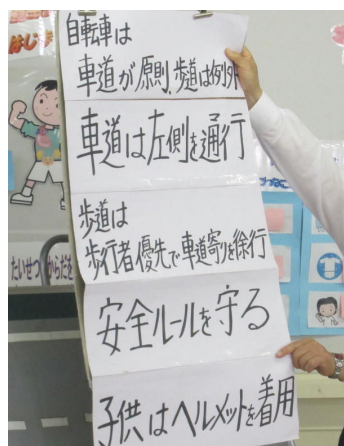 自転車は
車道が原則、歩道は例外
車道は左側を通行
歩道は
歩行者優先で車道寄りを徐行
安全ルールを守る
子供はヘルメットを着用
はじま
たいせつ
からだを